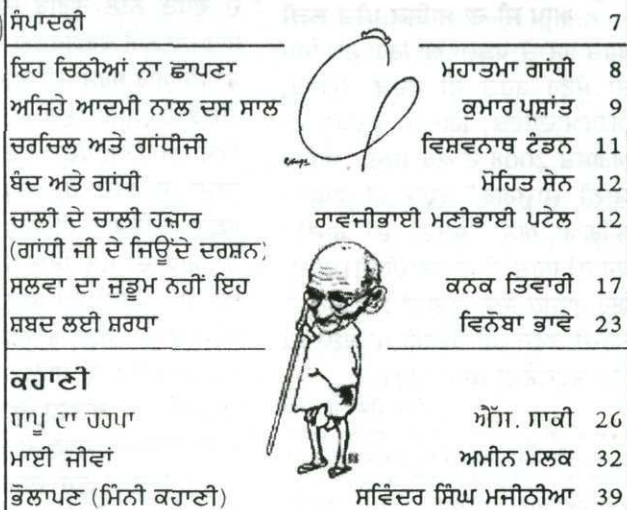 ਸੰਪਾਦਕੀ 7
ਇਹ ਚਿਠੀਆਂ ਨਾ ਛਾਪਣਾ ਮਹਾਤਮਾ ਗਾਂਧੀ 8
ਅਜਿਹੇ ਆਦਮੀ ਨਾਲ ਦਸ ਸਾਲ ਕੁਮਾਰ ਪ੍ਰਸ਼ਾਂਤ 9
ਚਰਚਿਲ ਅਤੇ ਗਾਂਧੀਜੀ ਵਿਸ਼ਵਨਾਥ ਟੰਡਨ 11
ਬੰਦ ਅਤੇ ਗਾਂਧੀ ਮੋਹਿਤ ਸੇਨ 12
ਚਾਲੀ ਦੇ ਚਾਲੀ ਹਜ਼ਾਰ ਰਾਵਜੀਭਾਈ ਮਣੀਭਾਈ ਪਟੇਲ 12
(ਗਾਂਧੀ ਜੀ ਦੇ ਜਿਊਂਦੇ ਦਰਸ਼ਨ)
ਸਲਵਾ ਦਾ ਜੁਡੂਮ ਨਹੀਂ ਇਹ ਕਨਕ ਤਿਵਾਰੀ 17
ਸ਼ਬਦ ਲਈ ਸ਼ਰਧਾ ਵਿਨੋਬਾ ਭਾਵੇ 23
ਕਹਾਣੀ
ਦਾ ਐੱਸ. ਸਾਕੀ 26
ਮਾਈ ਜੀਵਾਂ ਅਮੀਨ ਮਲਕ 32
ਭੋਲਾਪਣ (ਮਿੰਨੀ ਕਹਾਣੀ) ਸਵਿੰਦਰ ਸਿੰਘ ਮਜੀਠੀਆ 39